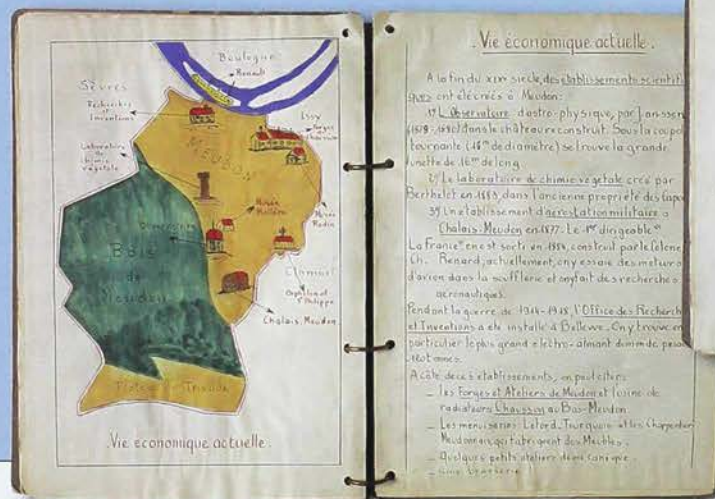 Boulogne
Renault
Sèvres
Recherches et Inventions
Issy
Forges
MEUDON
Laboratoire de chimie végétale
Musée Molière
Musée Rodin
Observatoire
Bois
de
Meudon
Clamart
Orphelinat St Philippe
Chalais-Meudon
Vie économique actuelle.
Vie économique actuelle.
A la fin du XIXe siècle, des établissements scientifi
ques ont été créés à Meudon:
1º L'Observatoire d'astro-physique, par Janssen
dans le château reconstruit. Sous la coupole
tournante (de diamètre) se trouve la grande
lunette de 16m de long
2º Le laboratoire de chimie végétale créé par
Berthelot en 1883, dans l'ancienne propriété des
3º Un établissement d'aérostation militaire à
Chalais-Meudon en 1877. Le 1er dirigeable "
La France" en est sorti en 1884, construit par le Colone
Ch. Renard; actuellement, on y essaie des moteurs
d'avion dans la soufflerie et on y fait des recherches
aéronautiques.
Pendant la guerre de 1914-1918, l'Office des Recherch
et Inventions a été installé à Bellevue. On y trouve en
particulier le plus grand électro-aimant du monde
tonnes.
A côté de ces établissements, on peut citer:
_ les Forges et Ateliers de Meudon et l'usine de
radiateurs Chausson au Bas-Meudon.
_ Les menuiseries Letord, Tourquois et les Charpentier
Meudonnais qui fabriquent des Meubles.
_ Quelques petits ateliers de mécanique.
_ une